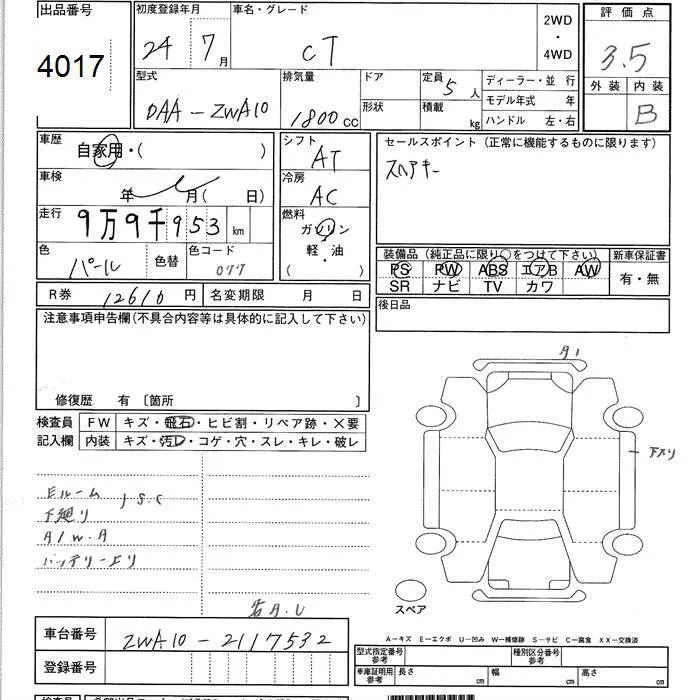 出品番号
4017
初度登録年月
24 7月
車名・グレード
CT
2WD
・
4WD
評価点
3.5
外装 内装
B
型式
DAA-ZWA10
排気量
1800cc
ドア
形状
定員
5人
積載
kg
ディーラー・並 行
モデル年式 年
ハンドル 左・右
車歴
自家用・( )
車検
年 月( 日)
走行
9万9千953km
色
パール
色替
色コード
077
シフト
AT
冷房
AC
燃料
ガソリン
軽・油
( )
セールスポイント (正常に機能するものに限ります)
スペアキー
装備品 (純正品に限り○をつけて下さい)
PS PW ABS エアB AW
SR ナビ TV カワ
新車保証書
有・無
後日品
R券 12610円
名変期限 月 日
注意事項申告欄(不具合内容等は具体的に記入して下さい)
修復歴 有 〔箇所 〕
検査員
記入欄
FW キズ・飛石・ヒビ割・リペア跡・×要
内装 キズ・汚レ・コゲ・穴・スレ・キレ・破レ
Eルーム J S.C
下廻り
A/W.A
バッテリー上り
A1
下スリ
スペア
車台番号
ZWA10-2117532
登録番号
A-キズ E-エクボ U-凹み W-補修跡 S-サビ C-腐食 XX-交換済
型式指定番号
参考
種別区分番号
参考
車庫証明用
参考
長さ cm
幅 cm
高さ cm